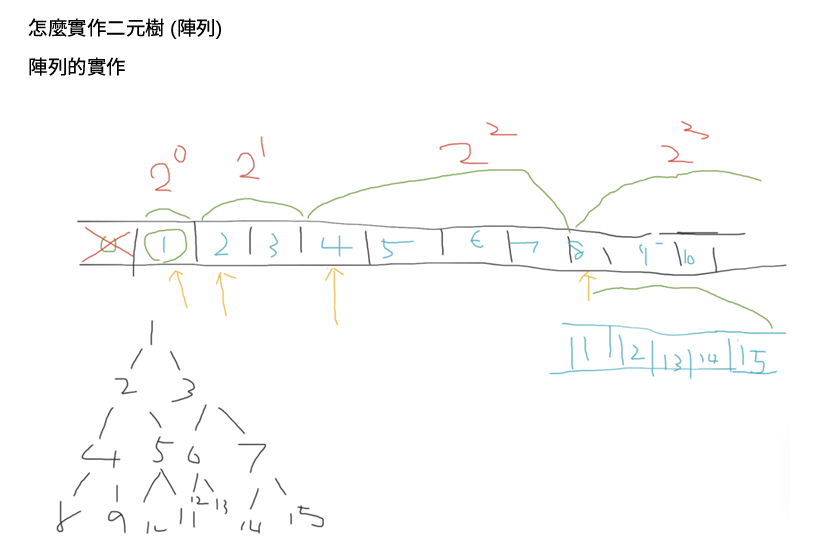 怎麼實作二元樹 (陣列)
陣列的實作
2⁰ 2¹ 2² 2³
0 1 2 3 4 5 6 7 8 9 10
11 12 13 14 15
1
2 3
4 5 6 7
8 9 10 11 12 13 14 15